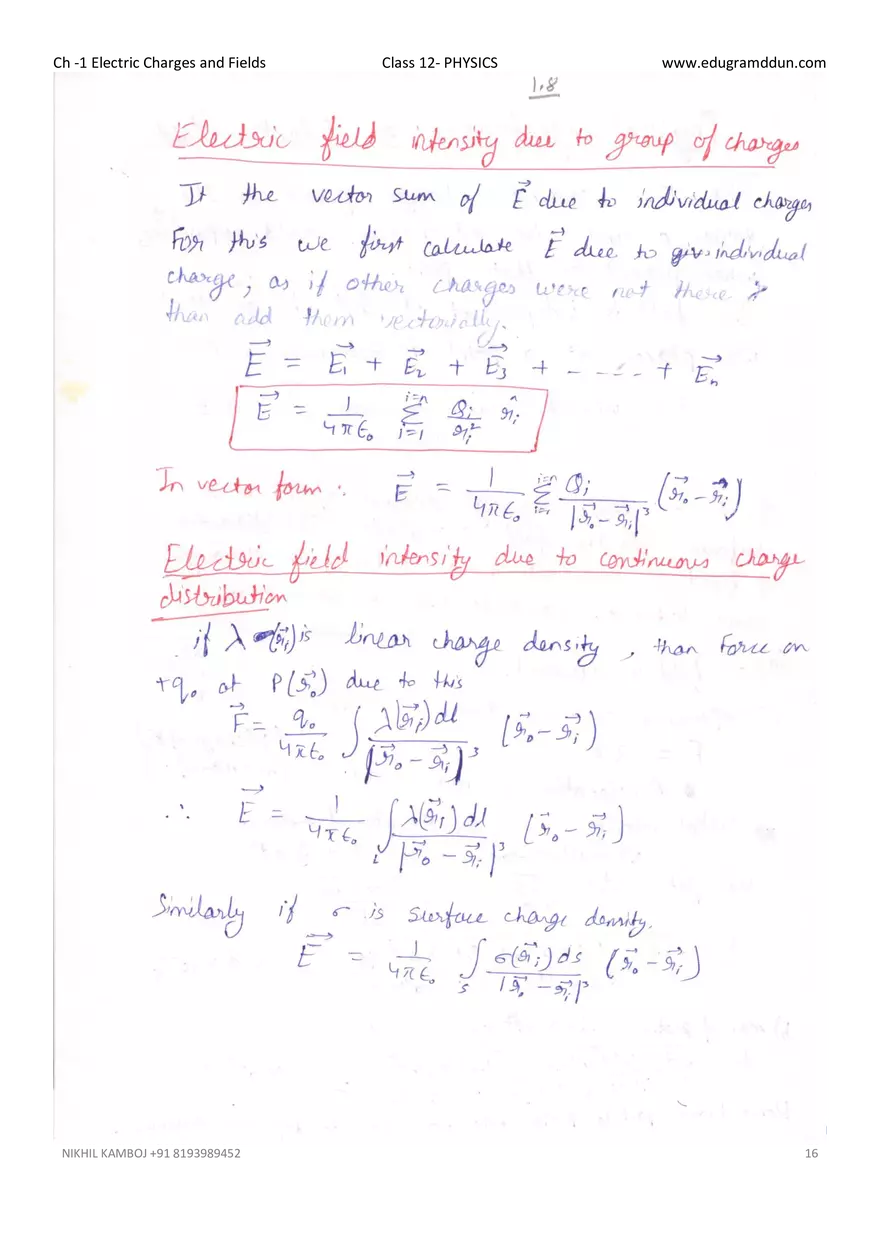 Ch -1 Electric Charges and Fields Class 12- PHYSICS www.edugramddun.com
1.8
Electric field intensity due to group of charges
It the vector sum of E⃗ due to individual charges
For this we first calculate E⃗ due to giv. individual
charge, as if other charges were not there &
than add them vectorially.
E⃗ = E⃗₁ + E⃗₂ + E⃗₃ + - - - - + E⃗ₙ
E⃗ = 1/4πϵ₀ Σ_{i=1}^{i=n} Qᵢ/rᵢ² r̂ᵢ
In vector form : E⃗ = 1/4πϵ₀ Σ_{i=1}^{i=n} Qᵢ/|r⃗₀ - r⃗ᵢ|³ (r⃗₀ - r⃗ᵢ)
Electric field intensity due to continuous charge
distribution
if λ (r⃗ᵢ) is linear charge density, than Force on
+q₀ at P(r⃗₀) due to this
F⃗ = q₀/4πϵ₀ ∫ λ(r⃗ᵢ) dl/|r⃗₀ - r⃗ᵢ|³ (r⃗₀ - r⃗ᵢ)
∴ E⃗ = 1/4πϵ₀ ∫_L λ(r⃗ᵢ) dl/|r⃗₀ - r⃗ᵢ|³ (r⃗₀ - r⃗ᵢ)
Similarly if σ is surface charge density.
E⃗ = 1/4πϵ₀ ∫_S σ(r⃗ᵢ) ds/|r⃗₀ - r⃗ᵢ|³ (r⃗₀ - r⃗ᵢ)
NIKHIL KAMBOJ +91 8193989452 16